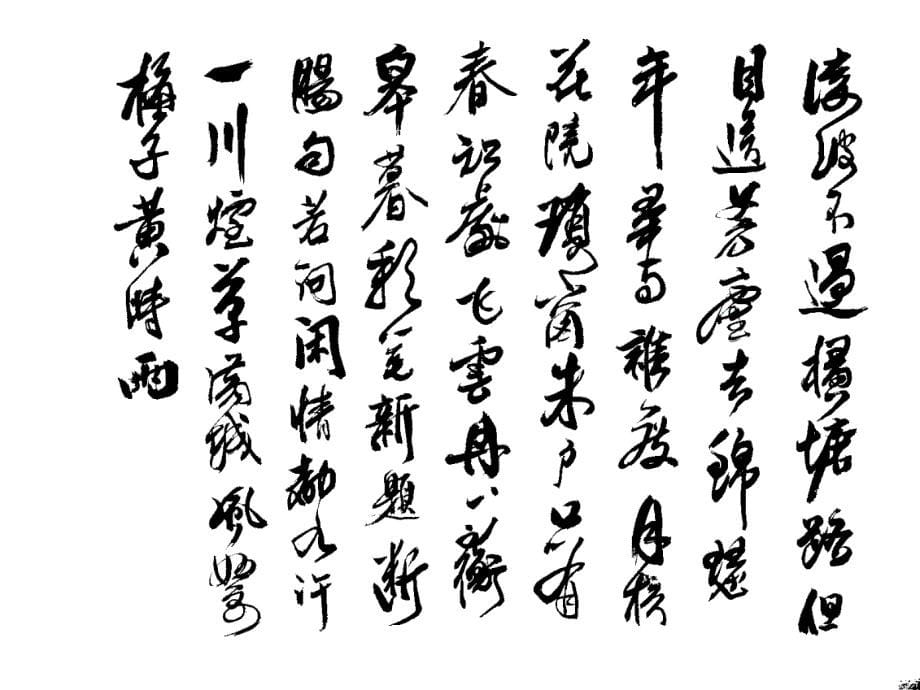 凌波不過橫塘路但
目送芳塵去錦瑟
年華与誰度月橋
花院瑣窗朱戶只有
春知處飛雲冉冉蘅
皋暮彩筆新題斷
腸句若問閑情都几許
一川煙草滿城風絮
梅子黃時雨